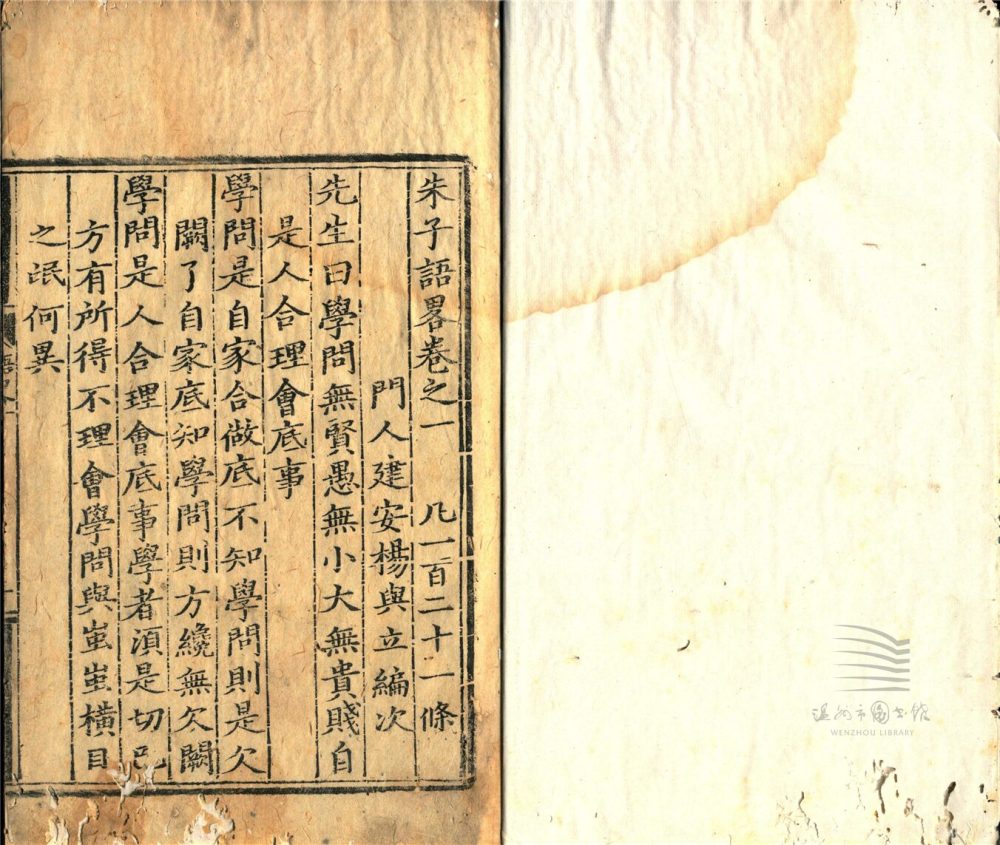 朱子語畧卷之一　凡一百二十一條
門人建安楊與立編次
先生曰學問無賢愚無小大無貴賤自
是人合理會底事
學問是自家合做底不知學問則是欠
闕了自家底知學問則方纔無欠闕
學問是人合理會底事學者須是切己
方有所得不理會學問與蚩蚩橫目
之氓何異
溫州市圖書館
WENZHOU LIBRARY